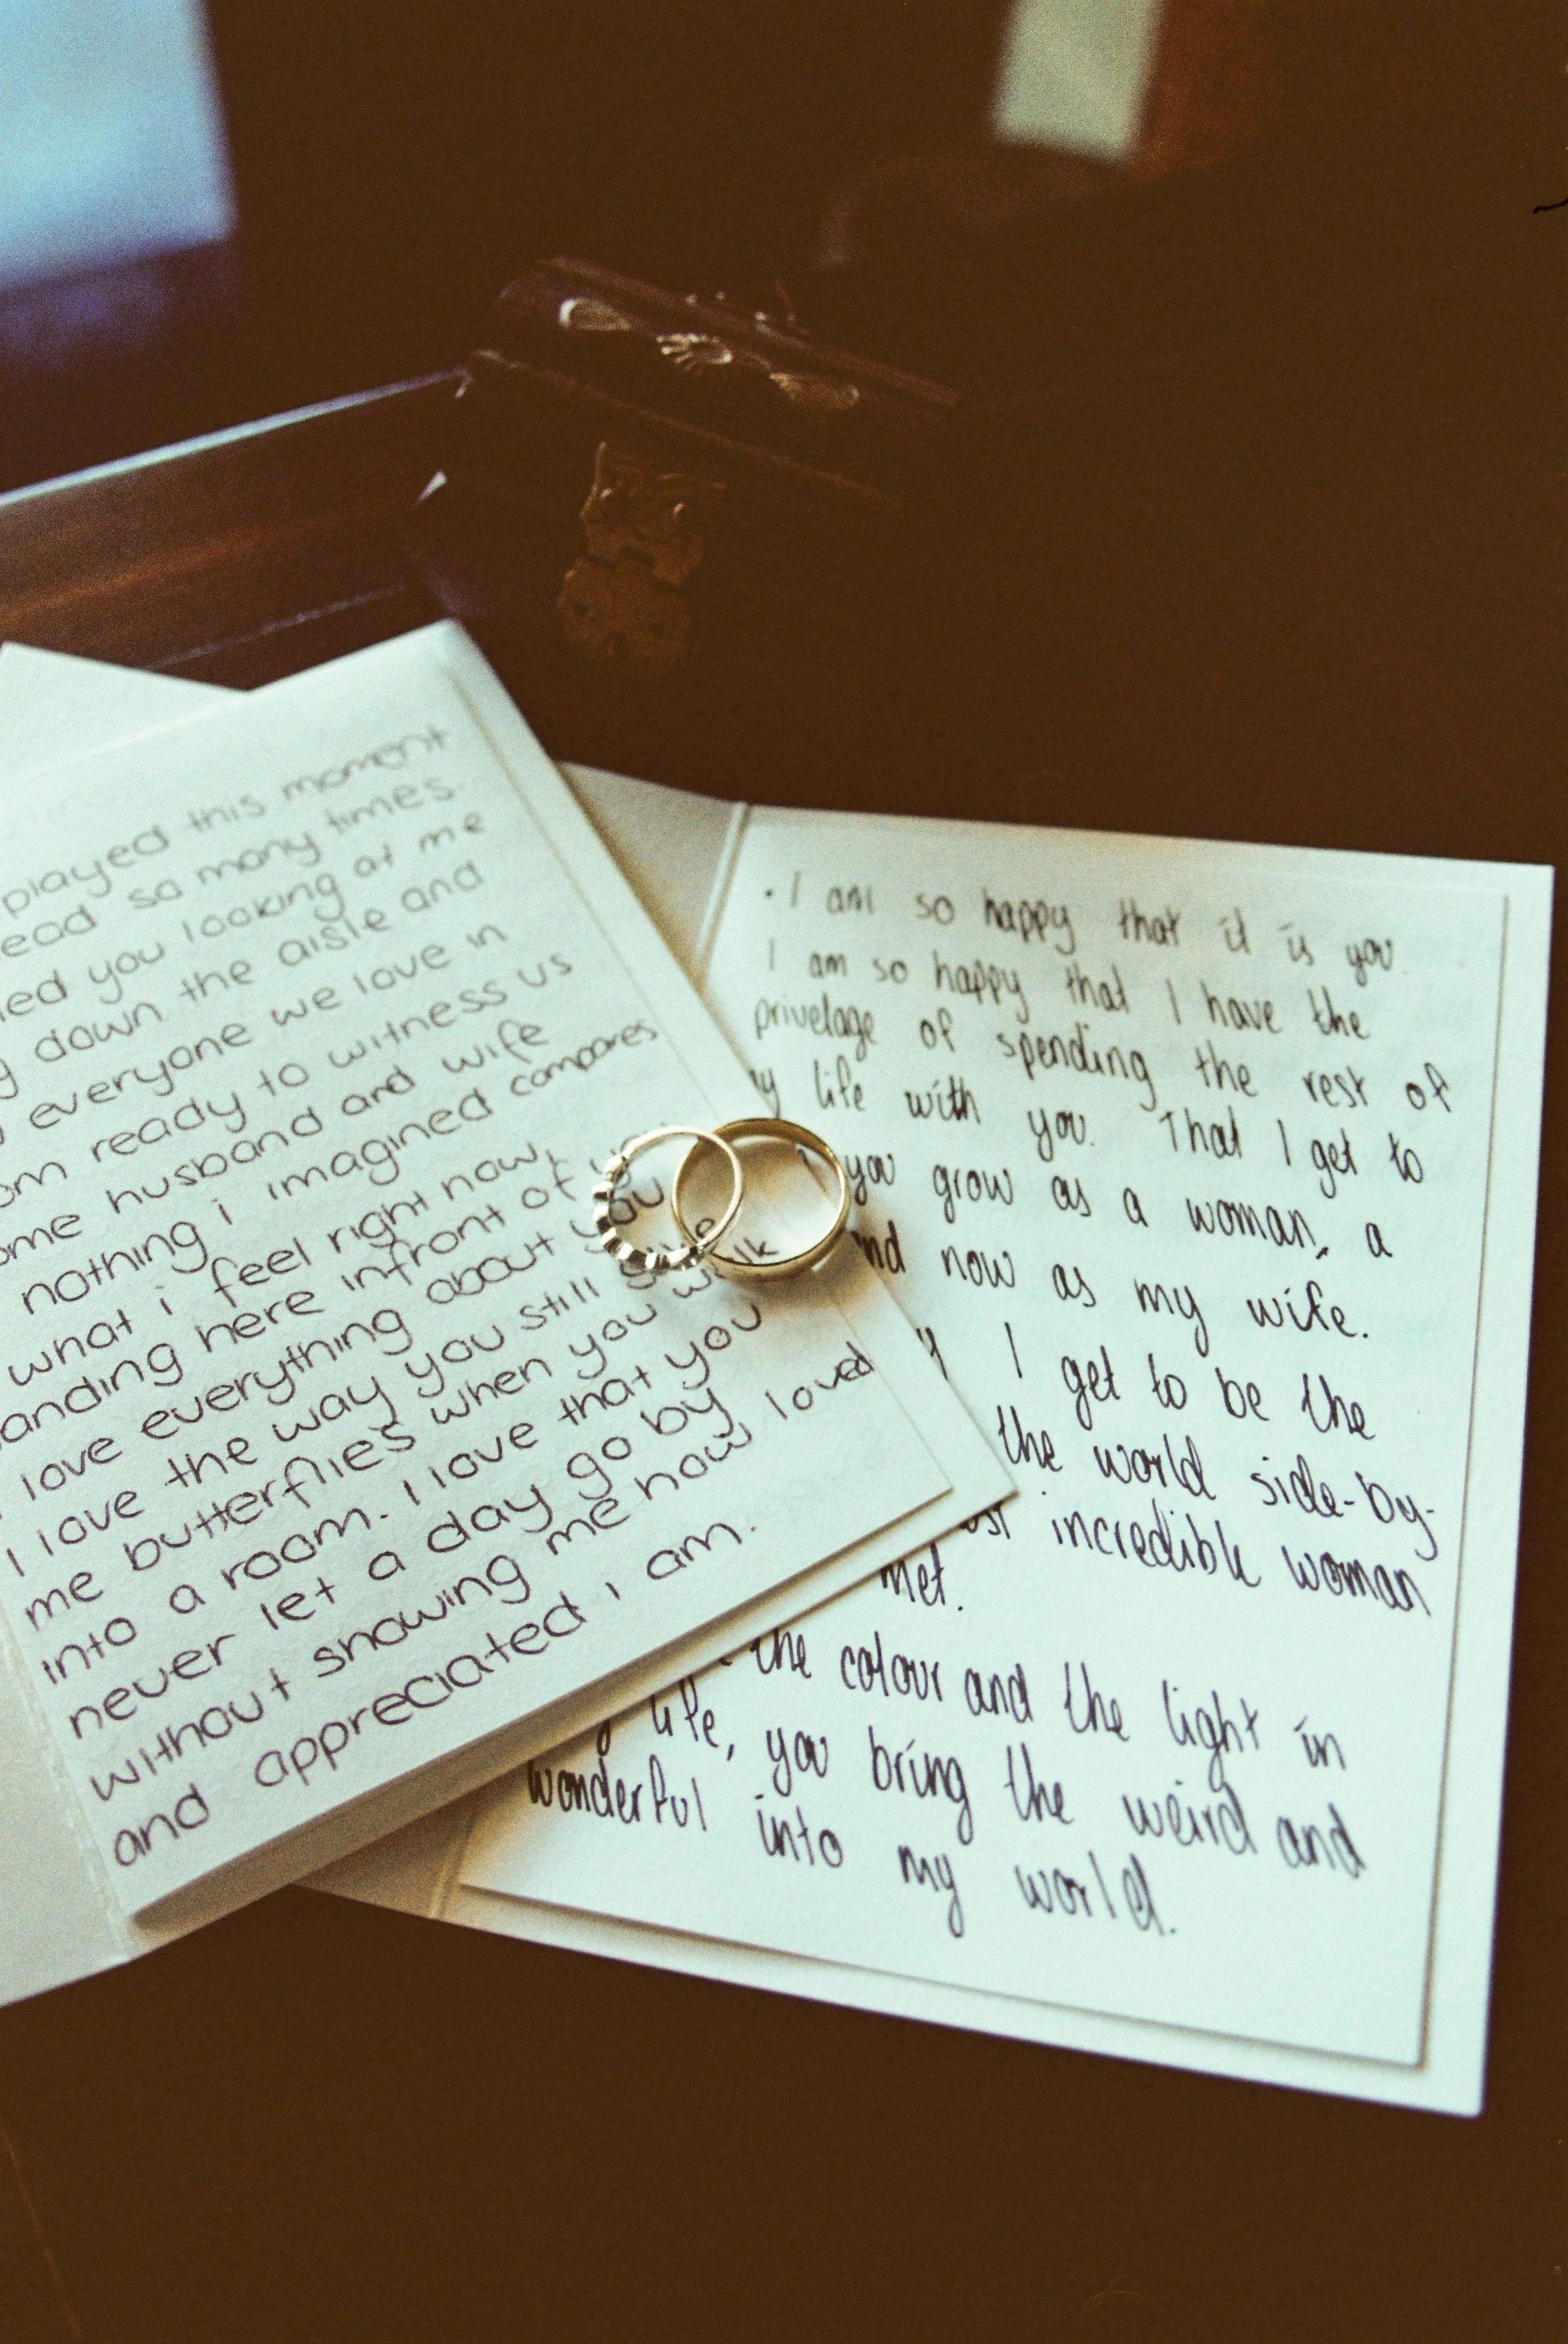 played this moment
so many times.
you looking at me
down the aisle and
everyone we love in
ready to witness us
husband and wife
nothing i imagined compares
what i feel right now,
here infront of
love everything about you
I love the way you still
me butterflies when you walk
into a room. I love that you
never let a day go by
without showing me how loved
and appreciated i am.
. I am so happy that it is you.
I am so happy that I have the
privelage of spending the rest of
life with you. That I get to
you grow as a woman, a
now as my wife.
I get to be the
the world side-by-
incredible woman
met.
the colour and the light in
life, you bring the weird and
wonderful into my world.